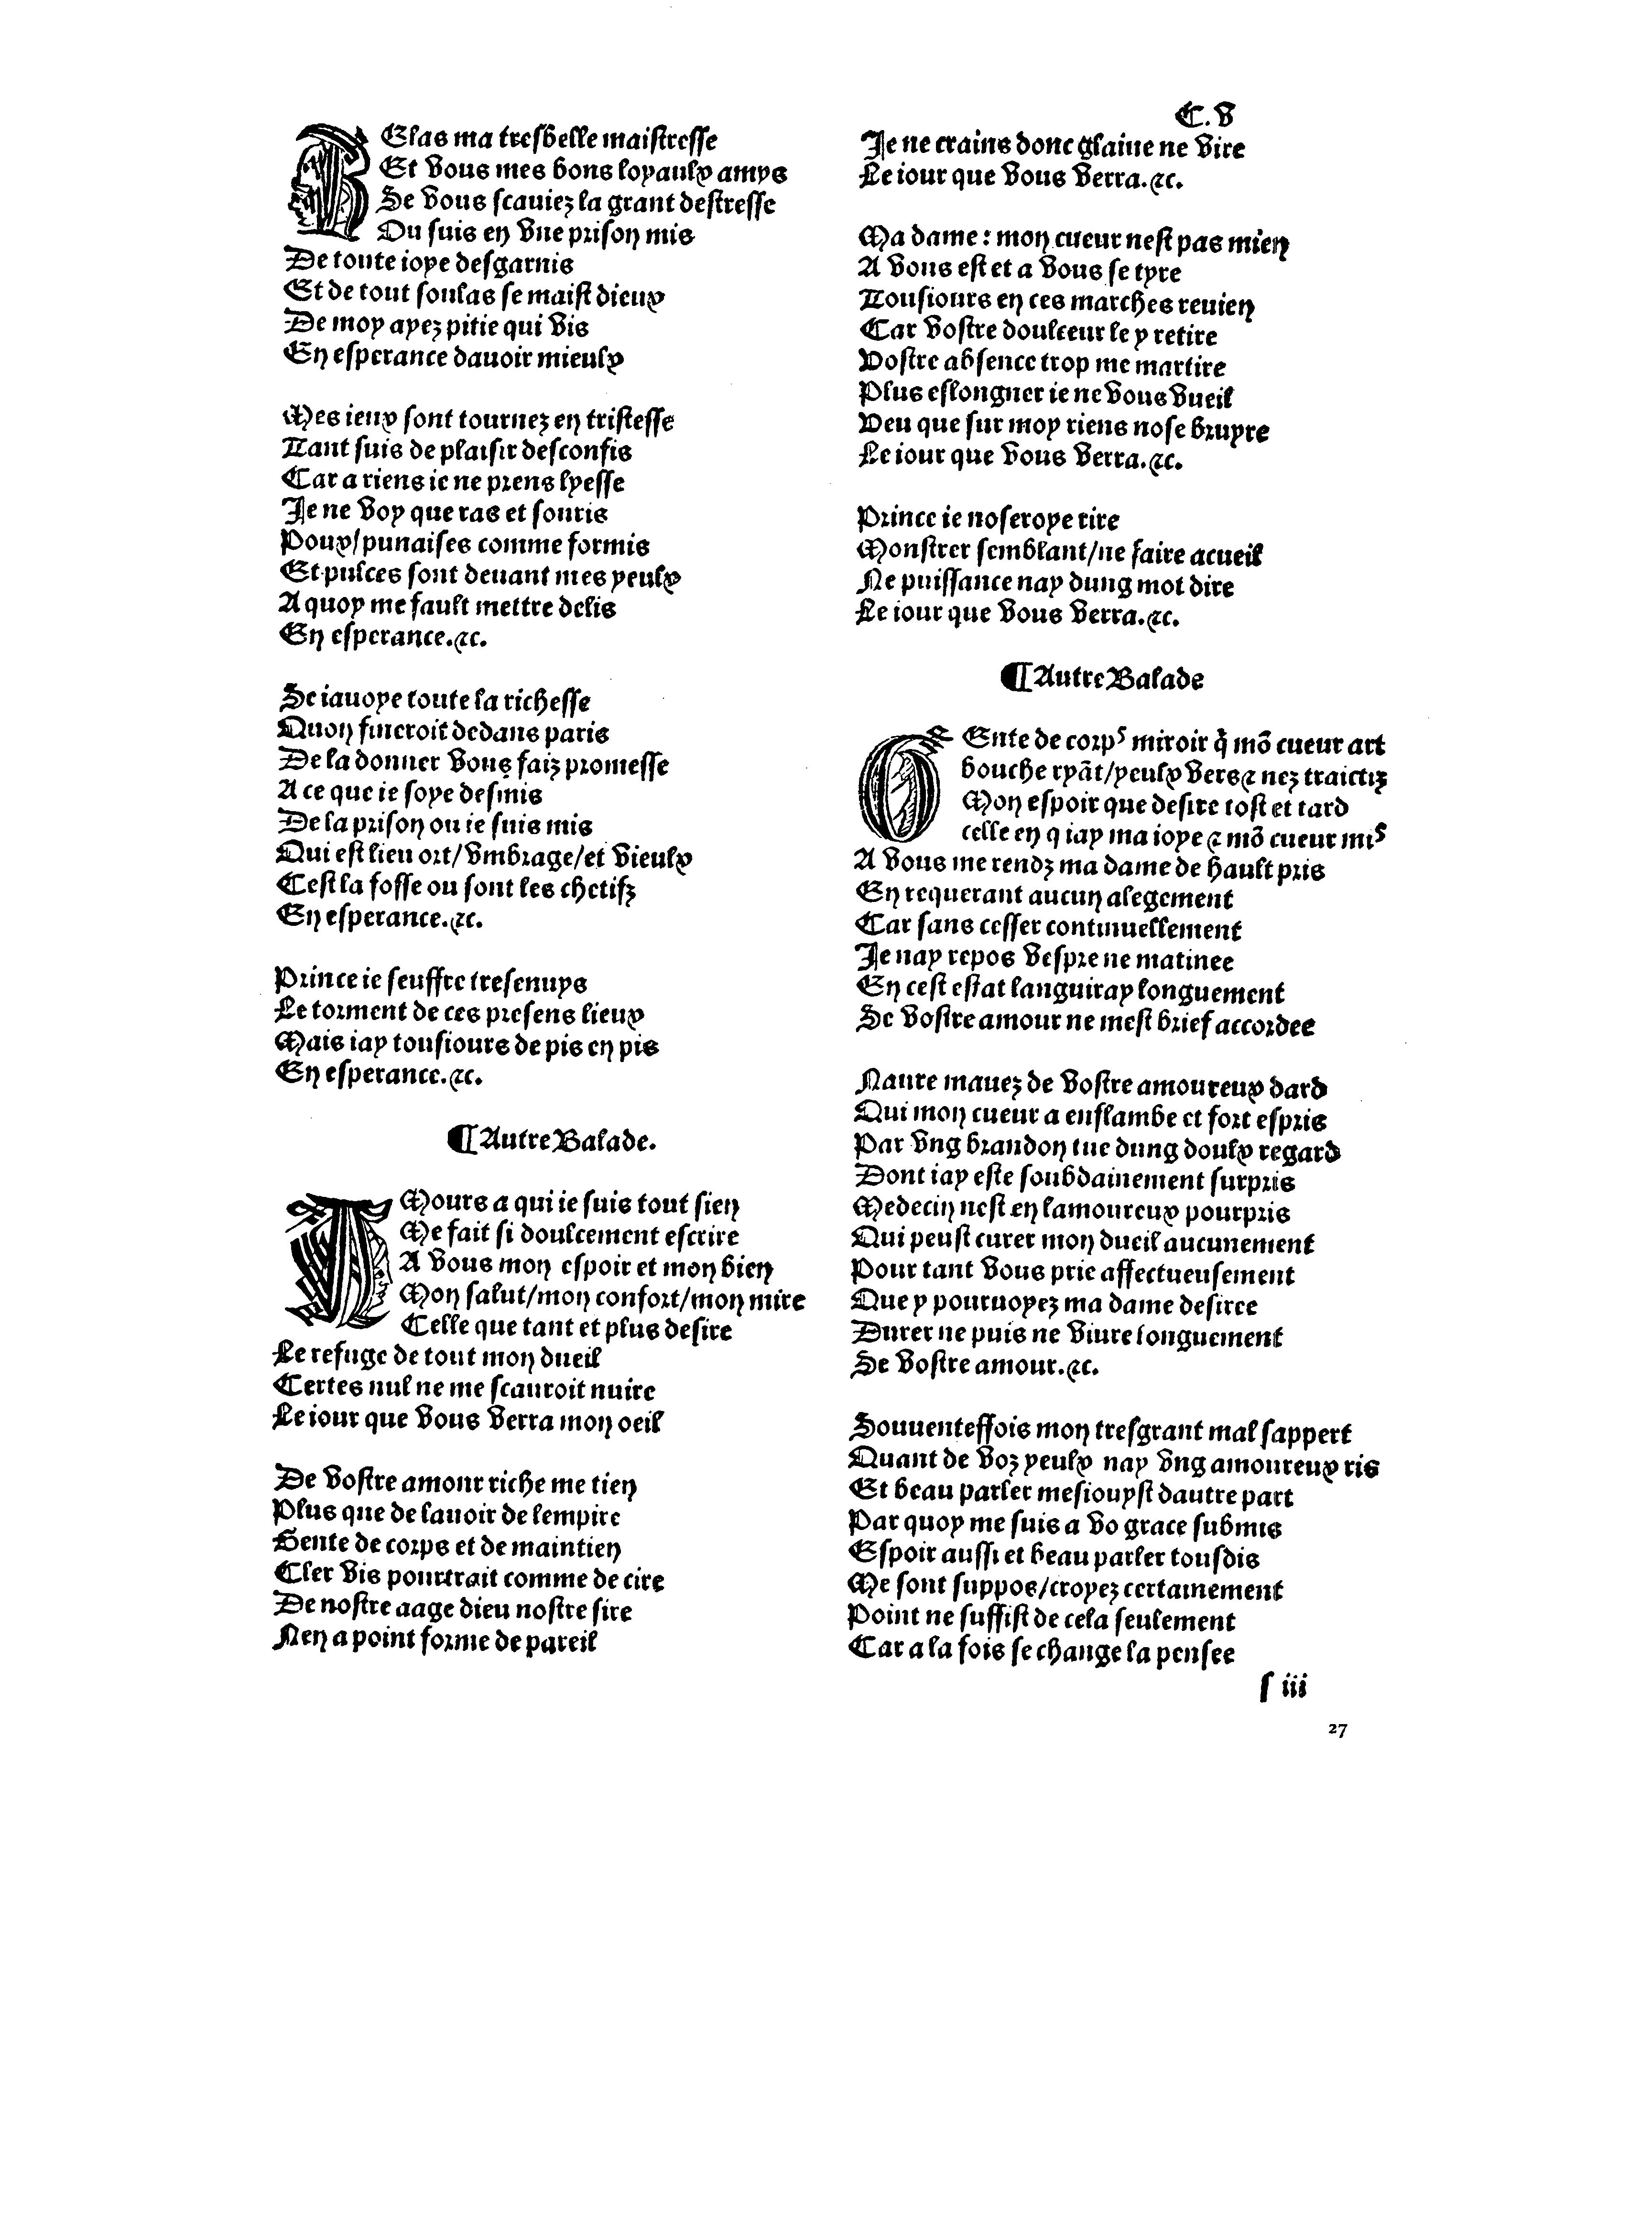 C.V
HElas ma tresbelle maistresse
Et vous mes bons loyaulx amys
Se vous scauiez la grant destresse
Ou suis en vne prison mis
De toute ioye desgarnis
Et de tout soulas se maist dieux
De moy ayez pitie qui vis
En esperance dauoir mieulx
Mes ieux sont tournez en tristesse
Tant suis de plaisir desconfis
Car a riens ie ne prens lyesse
Je ne voy que ras et souris
Poux/punaises comme formis
Et pulces sont deuant mes yeulx
A quoy me fault mettre delis
En esperance.⁊c.
Se iauoye toute la richesse
Quon fineroit dedans paris
De la donner vous faiz promesse
A ce que ie soye desmis
De la prison ou ie suis mis
Qui est lieu ort/vmbrage/et vieulx
Cest la fosse ou sont les chetifz
En esperance.⁊c.
Prince ie seuffre tresenuys
Le torment de ces presens lieux
Mais iay tousiours de pis en pis
En esperance.⁊c.
¶Autre Balade.
AMours a qui ie suis tout sien
Me fait si doulcement escrire
A vous mon espoir et mon bien
Mon salut/mon confort/mon mire
Celle que tant et plus desire
Le refuge de tout mon dueil
Certes nul ne me scauroit nuire
Le iour que vous verra mon oeil
De vostre amour riche me tien
Plus que de lauoir de lempire
Gente de corps et de maintien
Cler vis pourtrait comme de cire
De nostre aage dieu nostre sire
Nen a point forme de pareil
Je ne crains donc glaiue ne vire
Le iour que vous verra.⁊c.
Ma dame: mon cueur nest pas mien
A vous est et a vous se tyre
Tousiours en ces marches reuien
Car vostre doulceur le y retire
Vostre absence trop me martire
Plus eslongner ie ne vous vueil
Veu que sur moy riens nose bruyre
Le iour que vous verra.⁊c.
Prince ie noseroye rire
Monstrer semblant/ne faire acueil
Ne puissance nay dung mot dire
Le iour que vous verra.⁊c.
¶Autre Balade
GEnte de corpˢ miroir q̄ mō cueur art
bouche ryāt/yeulx vers⁊ nez traictiz
Mon espoir que desire tost et tard
celle en q iay ma ioye ⁊ mō cueur miˢ
A vous me rendz ma dame de hault pris
En requerant aucun alegement
Car sans cesser continuellement
Je nay repos vespre ne matinee
En cest estat languiray longuement
Se vostre amour ne mest brief accordee
Naure mauez de vostre amoureux dard
Qui mon cueur a enflambe et fort espris
Par vng brandon tue dung doulx regard
Dont iay este soubdainement surpris
Medecin nest en lamoureux pourpris
Qui peust curer mon dueil aucunement
Pour tant vous prie affectueusement
Que y pouruoyez ma dame desiree
Durer ne puis ne viure longuement
Se vostre amour.⁊c.
Souuenteffois mon tresgrant mal sappert
Quant de voz yeulx nay vng amoureux ris
Et beau parler mesiouyst dautre part
Par quoy me suis a vo grace submis
Espoir aussi et beau parler tousdis
Me sont suppos/croyez certainement
Point ne suffist de cela seulement
Car a la fois se change la pensee
s iii
27